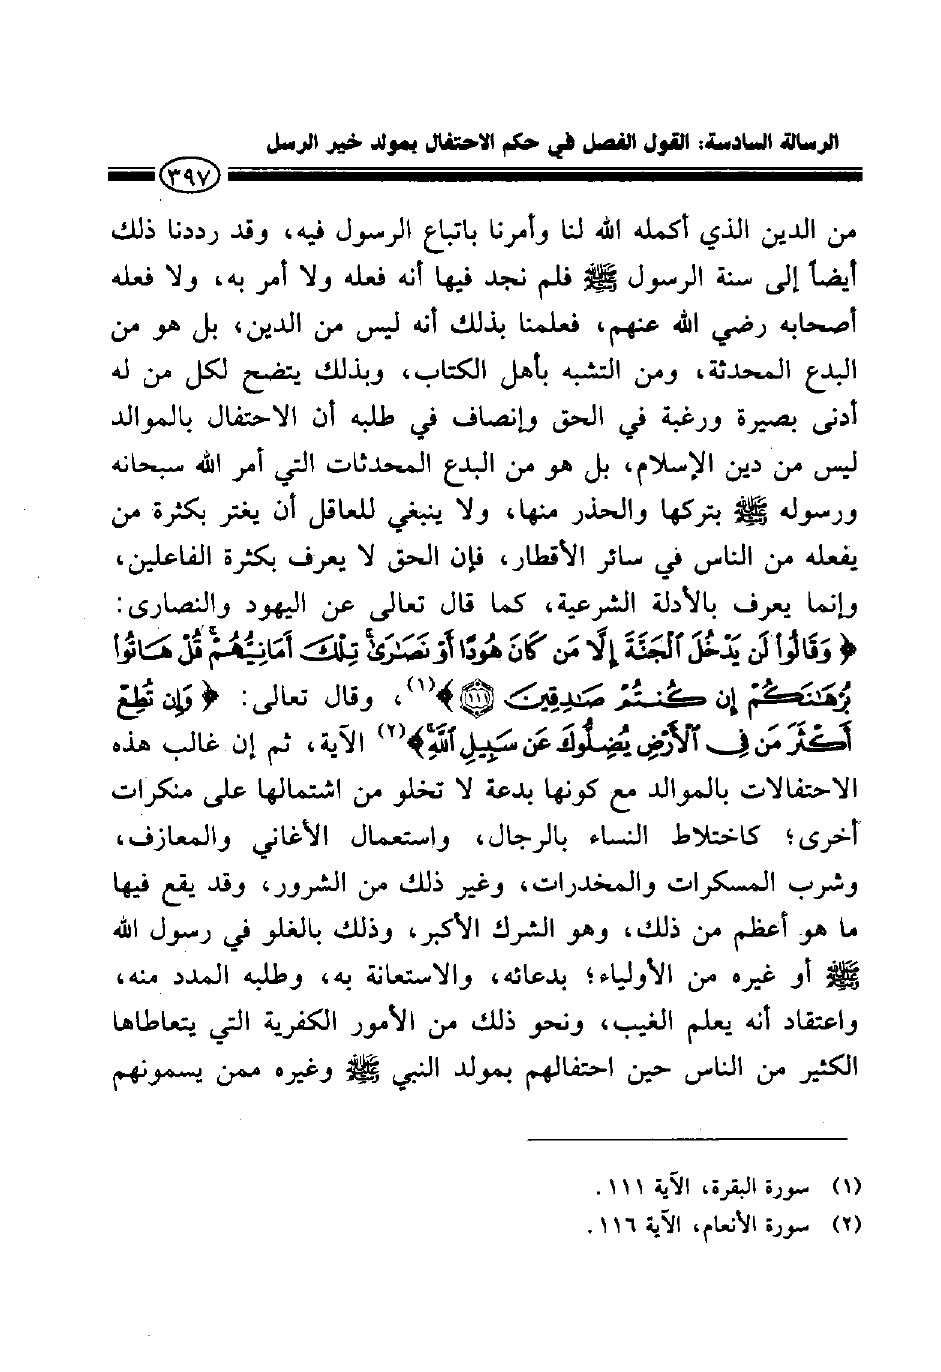 الرسالة السادسة: القول الفصل في حكم الاحتفال بمولد خير الرسل
٣٩٧
من الدين الذي أكمله الله لنا وأمرنا باتباع الرسول فيه، وقد رددنا ذلك
أيضاً إلى سنة الرسول ﷺ فلم نجد فيها أنه فعله ولا أمر به، ولا فعله
أصحابه رضي الله عنهم، فعلمنا بذلك أنه ليس من الدين، بل هو من
البدع المحدثة، ومن التشبه بأهل الكتاب، وبذلك يتضح لكل من له
أدنى بصيرة ورغبة في الحق وإنصاف في طلبه أن الاحتفال بالموالد
ليس من دين الإسلام، بل هو من البدع المحدثات التي أمر الله سبحانه
ورسوله ﷺ بتركها والحذر منها، ولا ينبغي للعاقل أن يغتر بكثرة من
يفعله من الناس في سائر الأقطار، فإن الحق لا يعرف بكثرة الفاعلين،
وإنما يعرف بالأدلة الشرعية، كما قال تعالى عن اليهود والنصارى:
﴿ وَقَالُوا۟ لَن يَدْخُلَ ٱلْجَنَّةَ إِلَّا مَن كَانَ هُودًا أَوْ نَصَـٰرَىٰ ۗ تِلْكَ أَمَانِيُّهُمْ ۗ قُلْ هَاتُوا۟
بُرْهَـٰنَكُمْ إِن كُنتُمْ صَـٰدِقِينَ ﴿١١١﴾ ﴾(١)، وقال تعالى: ﴿ وَإِن تُطِعْ
أَكْثَرَ مَن فِى ٱلْأَرْضِ يُضِلُّوكَ عَن سَبِيلِ ٱللَّهِ ۚ ﴾(٢) الآية، ثم إن غالب هذه
الاحتفالات بالموالد مع كونها بدعة لا تخلو من اشتمالها على منكرات
أخرى؛ كاختلاط النساء بالرجال، واستعمال الأغاني والمعازف،
وشرب المسكرات والمخدرات، وغير ذلك من الشرور، وقد يقع فيها
ما هو أعظم من ذلك، وهو الشرك الأكبر، وذلك بالغلو في رسول الله
ﷺ أو غيره من الأولياء؛ بدعائه، والاستعانة به، وطلبه المدد منه،
واعتقاد أنه يعلم الغيب، ونحو ذلك من الأمور الكفرية التي يتعاطاها
الكثير من الناس حين احتفالهم بمولد النبي ﷺ وغيره ممن يسمونهم
(١) سورة البقرة، الآية ١١١.
(٢) سورة الأنعام، الآية ١١٦.